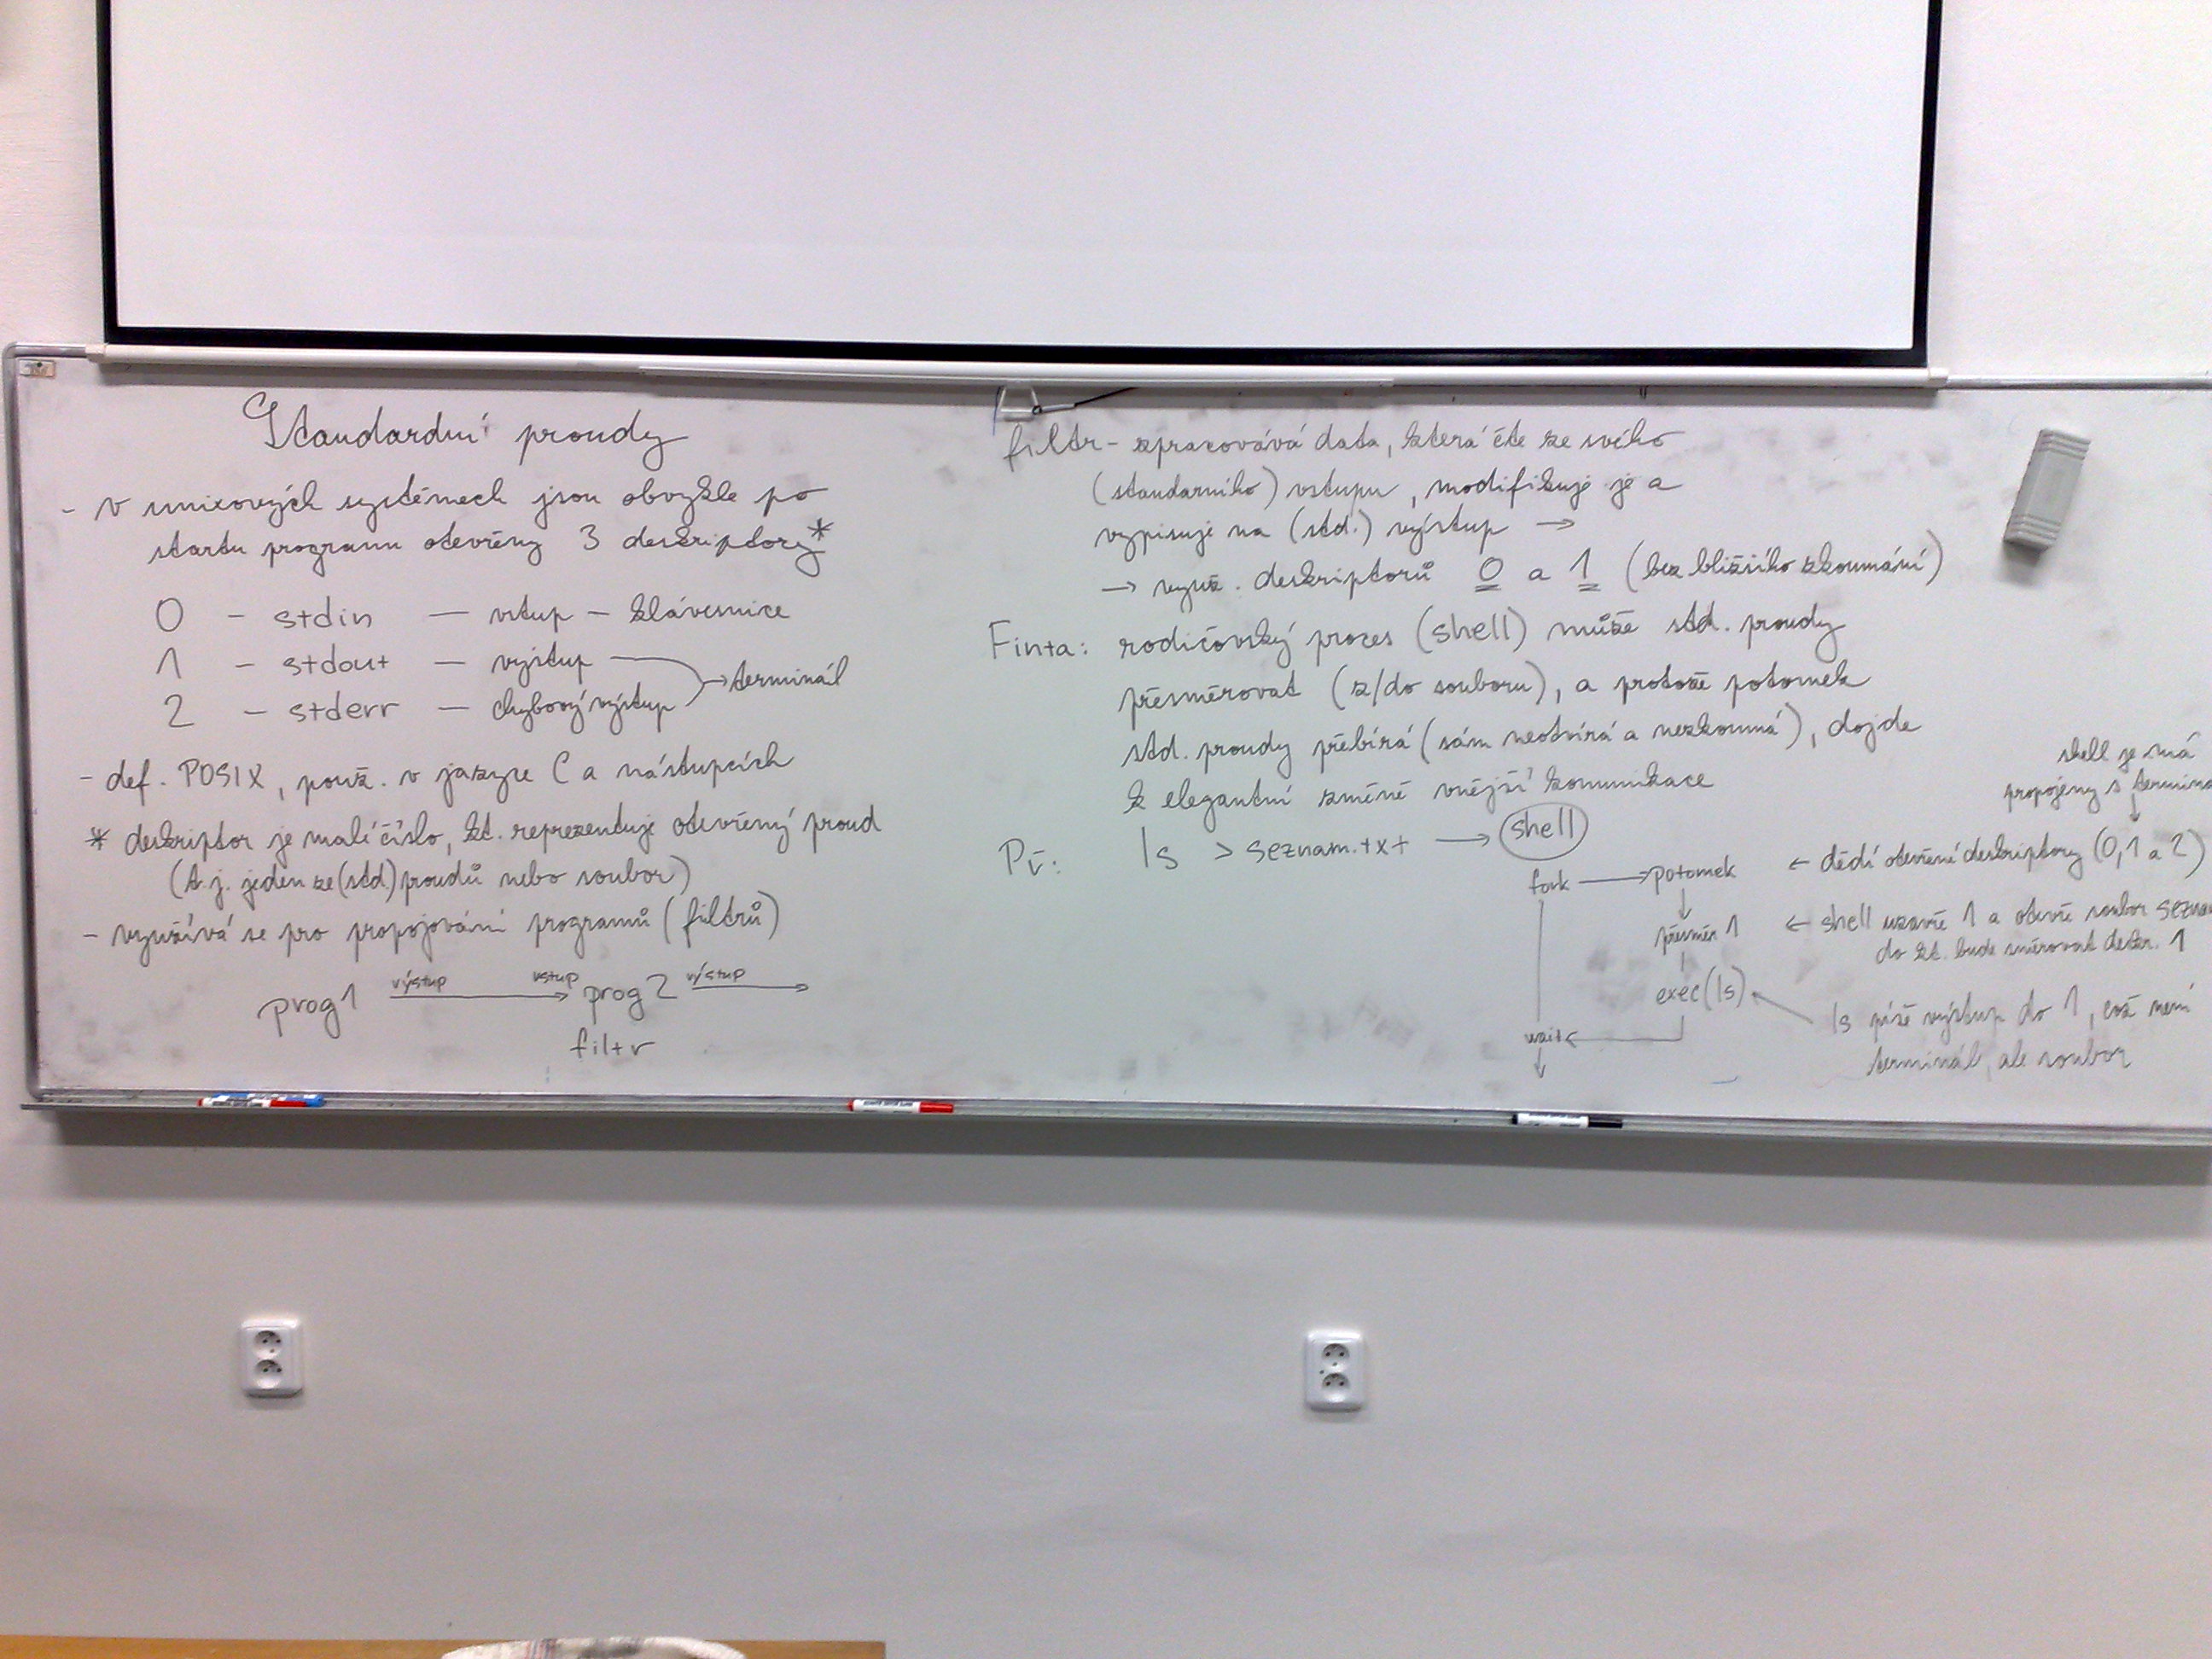 Standardní proudy
- v unixových systémech jsou obvykle po
startu programu otevřeny 3 deskriptory*
0 - stdin — vstup — klávesnice
1 - stdout — výstup
2 - stderr — chybový výstup
→ terminál
- def. POSIX, použ. v jazyce C a nástupcích
* deskriptor je malé číslo, kt. reprezentuje otevřený proud
(t.j. jeden ze (std.) proudů nebo soubor)
- využívá se pro propojování programů (filtrů)
prog1 výstup → vstup prog2 výstup →
filtr
filtr - zpracovává data, která čte ze svého
(standarního) vstupu, modifikuje je a
vypisuje na (std.) výstup →
→ využ. deskriptorů 0 a 1 (bez bližšího zkoumání)
Finta: rodičovský proces (shell) může std. proudy
přesměrovat (z/do souboru), a protože potomek
std. proudy přebírá (sám neotvírá a nezkoumá), dojde
k elegantní změně vnější komunikace
Př: ls > seznam.txt → shell
shell je má
propojeny s
fork → potomek ← dědí otevřené deskriptory (0, 1 a 2)
přesměr 1 ← shell uzavře 1 a otevře soubor
do kt. bude směrovat deskr. 1
exec(ls)
ls píše výstup do 1, což není
terminál, ale soubor
wait